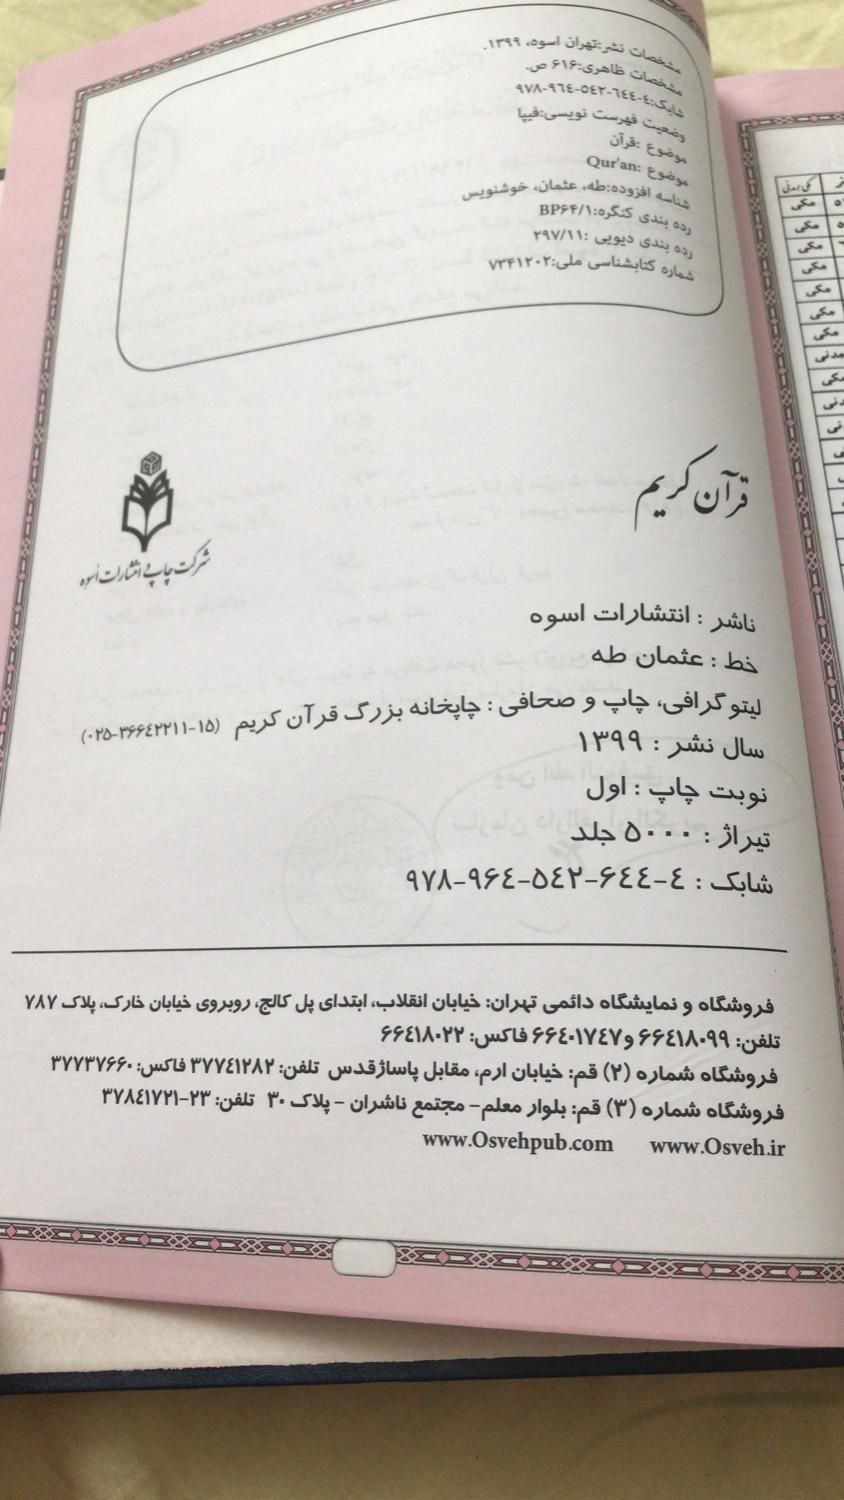 مشخصات نشر:تهران اسوه، ۱۳۹۹.
مشخصات ظاهری:۶۱۶ ص.
شابک:٤-٦٤٤-٥٤٢-٩٦٤-٩٧٨
وضعیت فهرست نویسی:فیپا
موضوع :قرآن
موضوع :Qur'an
شناسه افزوده:طه، عثمان، خوشنویس
رده بندی کنگره:BP۶۴/۱
رده بندی دیویی :۲۹۷/۱۱
شماره کتابشناسی ملی:۷۳۴۱۲۰۲
قرآن کریم
شرکت چاپ و انتشارات اسوه
ناشر : انتشارات اسوه
خط : عثمان طه
لیتو گرافی، چاپ و صحافی : چاپخانه بزرگ قرآن کریم (۱۵-۳۶۶٤۲۲۱۱-۰۲۵)
سال نشر : ۱۳۹۹
نوبت چاپ : اول
تیراژ : ۵۰۰۰ جلد
شابک : ٤-۶٤٤-۵٤۲-۹۶٤-۹۷۸
فروشگاه و نمایشگاه دائمی تهران: خیابان انقلاب، ابتدای پل کالج، روبروی خیابان خارک، پلاک ۷۸۷
تلفن: ۶۶٤۱۸۰۹۹ و۶۶٤۰۱۷٤۷ فاکس: ۶۶٤۱۸۰۲۲
فروشگاه شماره (۲) قم: خیابان ارم، مقابل پاساژقدس تلفن: ۳۷۷٤۱۲۸۲ فاکس: ۳۷۷۳۷۶۶۰
فروشگاه شماره (۳) قم: بلوار معلم- مجتمع ناشران - پلاک ۳۰ تلفن: ۲۳-۳۷۸٤۱۷۲۱
www.Osvehpub.com www.Osveh.ir
مکی/مدنی
مکی
مکی
مکی
مکی
مکی
مکی
مکی
مدنی